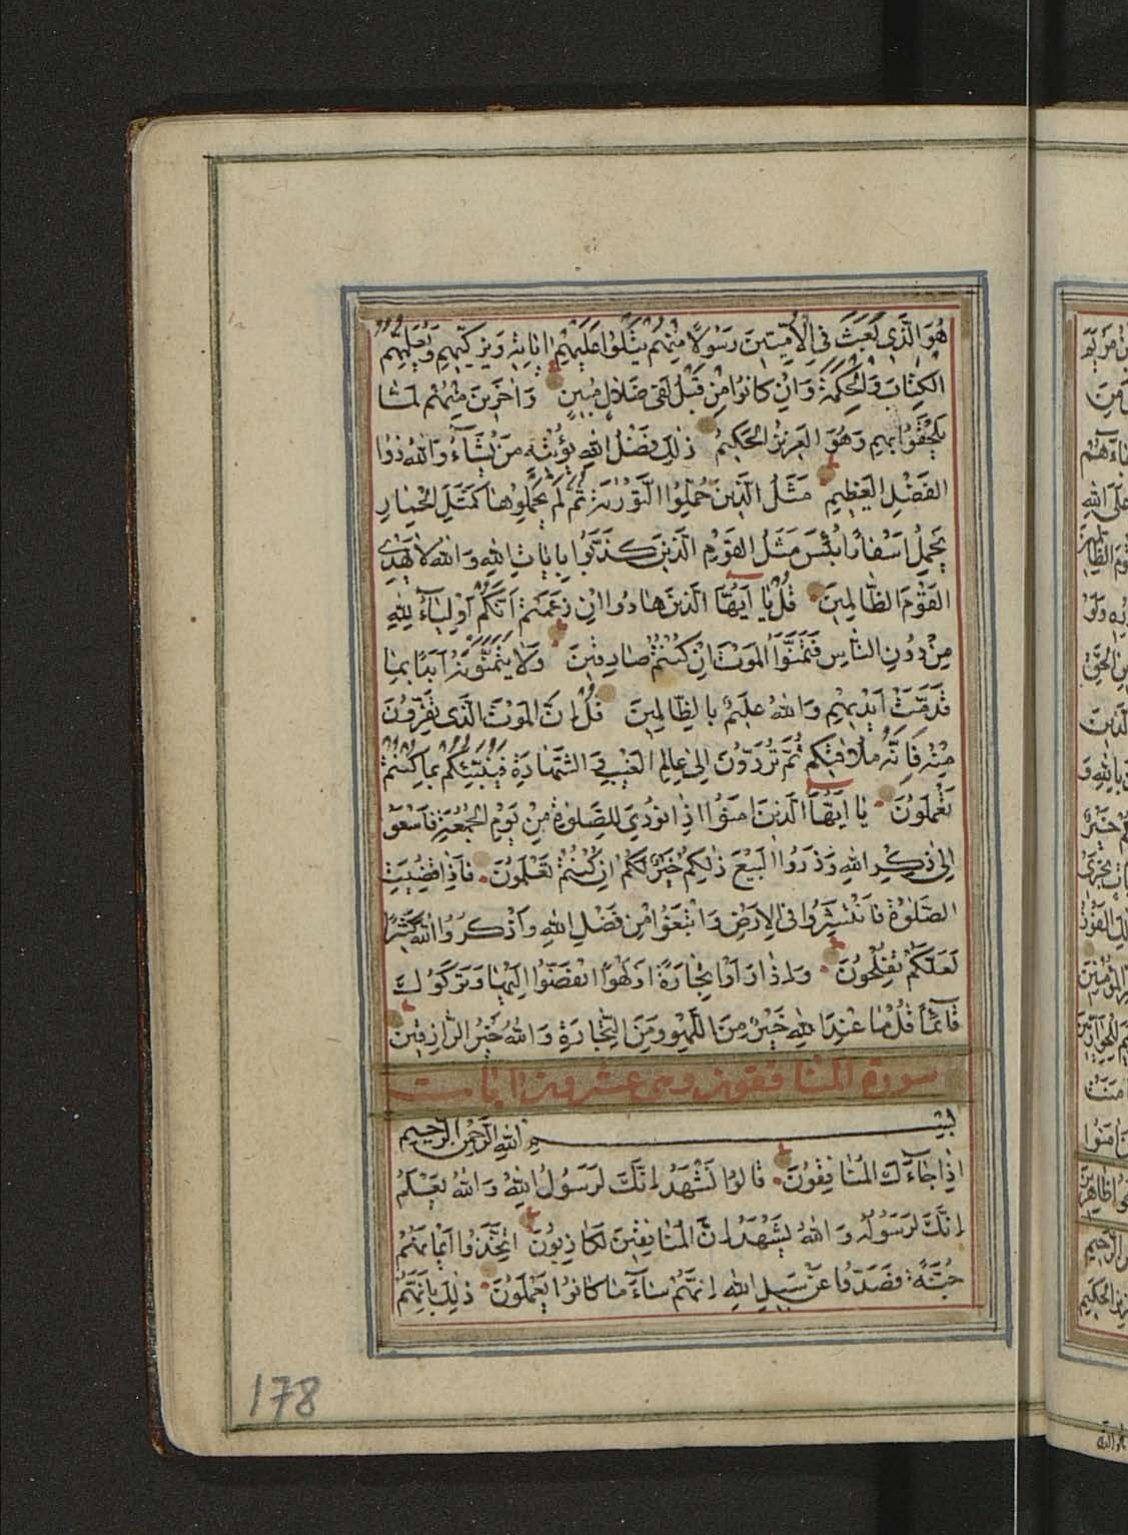 هُوَ الَّذِی بَعَثَ فِی الْاُمِّیّٖنَ رَسُولًا مِنْهُمْ یَتْلُوا عَلَیْهِمْ اٰیَاتِهٖ وَیُزَکّٖیهِمْ وَیُعَلِّمُهُمُ
الْکِتَابَ وَالْحِکْمَةَ وَاِنْ کَانُوا مِنْ قَبْلُ لَفٖی ضَلَالٍ مُبٖینٍ وَاٰخَرٖینَ مِنْهُمْ لَمَّا
یَلْحَقُوا بِهِمْ وَهُوَ الْعَزٖیزُ الْحَکٖیمُ ذٰلِكَ فَضْلُ اللّٰهِ یُؤْتٖیهِ مَنْ یَشَاۤءُ وَاللّٰهُ ذُوا
الْفَضْلِ الْعَظٖیمِ مَثَلُ الَّذٖینَ حُمِّلُوا التَّوْرٰیةَ ثُمَّ لَمْ یَحْمِلُوهَا کَمَثَلِ الْحِمَارِ
یَحْمِلُ اَسْفَارًا بِئْسَ مَثَلُ الْقَوْمِ الَّذٖینَ کَذَّبُوا بِاٰیَاتِ اللّٰهِ وَاللّٰهُ لَا یَهْدِی
الْقَوْمَ الظَّالِمٖینَ قُلْ یَا اَیُّهَا الَّذٖینَ هَادُوا اِنْ زَعَمْتُمْ اَنَّکُمْ اَوْلِیَاۤءُ لِلّٰهِ
مِنْ دُونِ النَّاسِ فَتَمَنَّوُا الْمَوْتَ اِنْ کُنْتُمْ صَادِقٖینَ وَلَا یَتَمَنَّوْنَهُ اَبَدًا بِمَا
قَدَّمَتْ اَیْدٖیهِمْ وَاللّٰهُ عَلٖیمٌ بِالظَّالِمٖینَ قُلْ اِنَّ الْمَوْتَ الَّذٖی تَفِرُّونَ
مِنْهُ فَاِنَّهُ مُلَاقٖیکُمْ ثُمَّ تُرَدُّونَ اِلٰی عَالِمِ الْغَیْبِ وَالشَّهَادَةِ فَیُنَبِّئُکُمْ بِمَا کُنْتُمْ
تَعْمَلُونَ یَا اَیُّهَا الَّذٖینَ اٰمَنُوا اِذَا نُودِیَ لِلصَّلٰوةِ مِنْ یَوْمِ الْجُمُعَةِ فَاسْعَوْا
اِلٰی ذِکْرِ اللّٰهِ وَذَرُوا الْبَیْعَ ذٰلِکُمْ خَیْرٌ لَکُمْ اِنْ کُنْتُمْ تَعْلَمُونَ فَاِذَا قُضِیَتِ
الصَّلٰوةُ فَانْتَشِرُوا فِی الْاَرْضِ وَابْتَغُوا مِنْ فَضْلِ اللّٰهِ وَاذْکُرُوا اللّٰهَ کَثٖیرًا
لَعَلَّکُمْ تُفْلِحُونَ وَاِذَا رَاَوْا تِجَارَةً اَوْ لَهْوًا انْفَضُّوا اِلَیْهَا وَتَرَکُوكَ
قَاۤئِمًا قُلْ مَا عِنْدَ اللّٰهِ خَیْرٌ مِنَ اللَّهْوِ وَمِنَ التِّجَارَةِ وَاللّٰهُ خَیْرُ الرَّازِقٖینَ
سورة المنافقون وهی عشر اٰیات
بِسْمِ اللّٰهِ الرَّحْمٰنِ الرَّحٖیمِ
اِذَا جَاۤءَكَ الْمُنَافِقُونَ قَالُوا نَشْهَدُ اِنَّكَ لَرَسُولُ اللّٰهِ وَاللّٰهُ یَعْلَمُ
اِنَّكَ لَرَسُولُهُ وَاللّٰهُ یَشْهَدُ اِنَّ الْمُنَافِقٖینَ لَکَاذِبُونَ اِتَّخَذُوا اَیْمَانَهُمْ
جُنَّةً فَصَدُّوا عَنْ سَبٖیلِ اللّٰهِ اِنَّهُمْ سَاۤءَ مَا کَانُوا یَعْمَلُونَ ذٰلِكَ بِاَنَّهُمْ
178